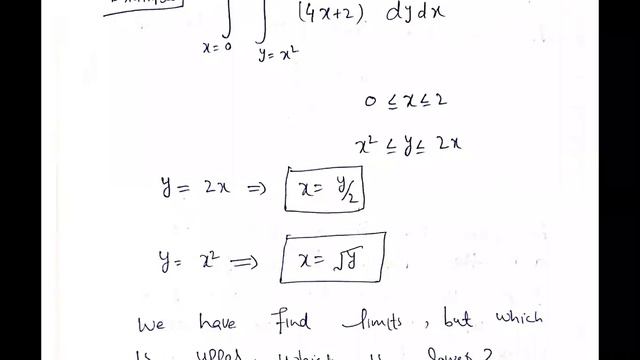 ∫ ∫ (4x+2) dy dx
x=0 y=x²
0 ≤ x ≤ 2
x² ≤ y ≤ 2x
y = 2x ⇒ x = y/2
y = x² ⇒ x = √y
We have find limits, but which
is upper which is lower?